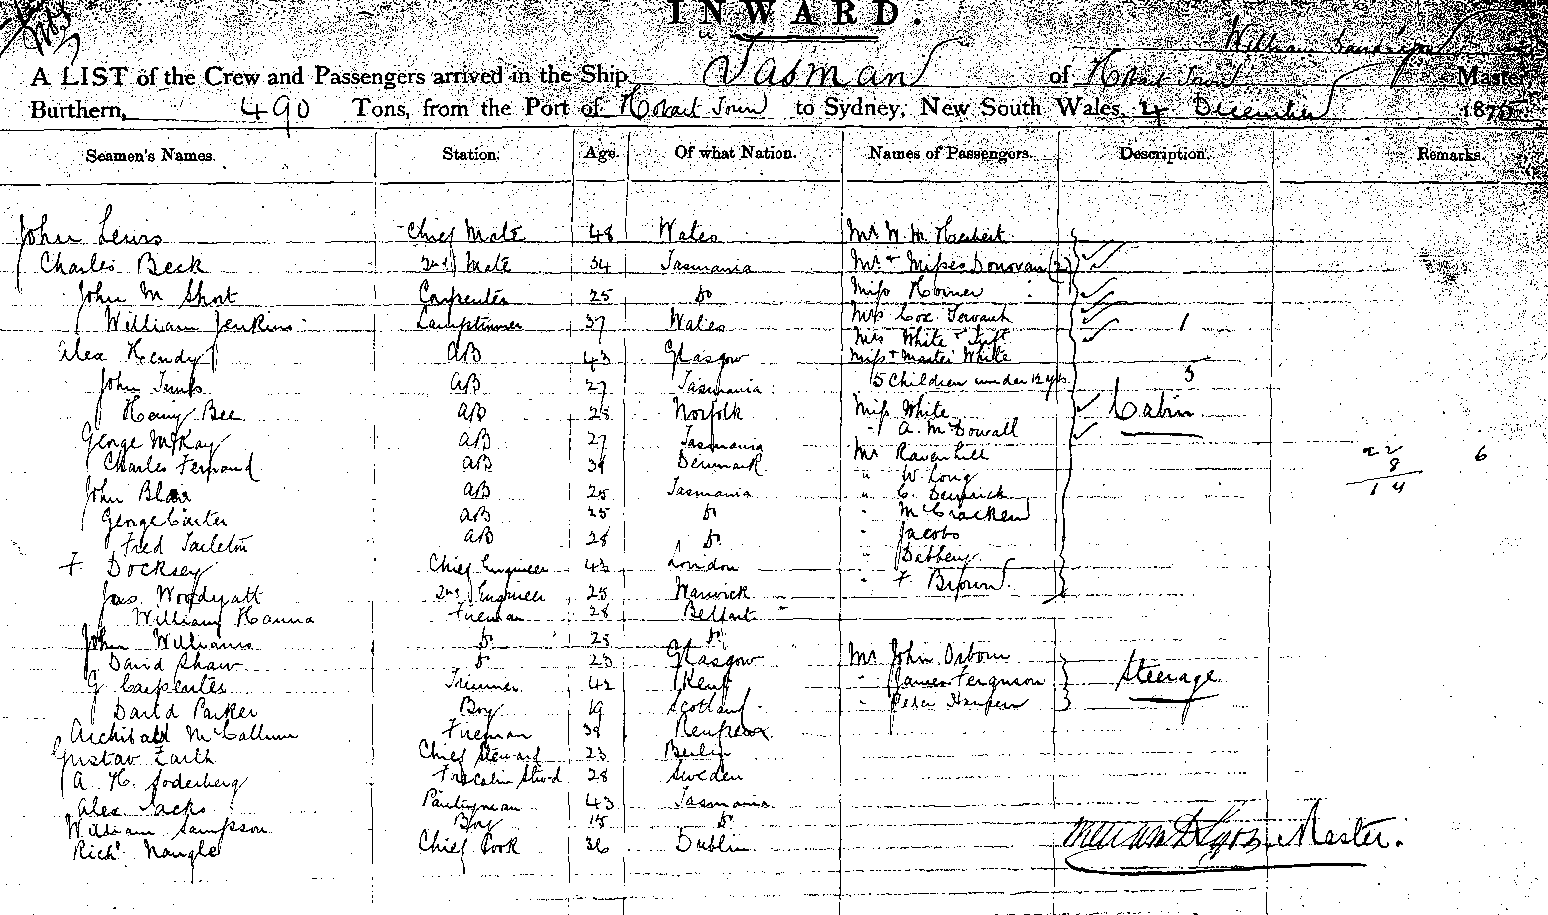 INWARD.
William
A LIST of the Crew and Passengers arrived in the Ship Tasman of Hobart Town Master
Burthern, 490 Tons, from the Port of Hobart Town to Sydney, New South Wales, 4 December 187
Seamen's Names. Station. Age. Of what Nation. Names of Passengers. Description. Remarks.
John Lewis Chief Mate 48 Wales Mr W. M. Herbert
Charles Beck 2nd Mate 34 Tasmania Mr & Misses Donovan (2)
John M Short Carpenter 25 Do Miss Horner
William Jenkins Lamptrimmer 37 Wales Miss Cox Servant 1
Mrs White &
Alex Hendy AB 43 Glasgow Miss & Master White
John AB 27 Tasmania 5 Children under 12 yrs 5
Henry Bee AB 28 Norfolk Miss White Cabin
George McKay AB 27 Tasmania " A. McDowall
Charles AB 39 Denmark Mr Ravenhill 22 6
John Blair AB 25 Tasmania " W. Long 8
" C. 14
George Carter AB 25 Do " McCracken
Fred Tarleton AB 28 Do " Jacobs
F Docksey Chief Engineer 43 London "
Jas Woodyatt 2nd Engineer 25 Warwick " F Brown
William Hanna Fireman 28 Belfast
John Williams Do 28 Do
David Shaw Do 23 Glasgow Mr John Osborn
G Carpenter Trimmer 42 Kent " James Ferguson Steerage
David Parker Boy 19 Scotland " Peter
Archibald McCallum Fireman 38 Renfrew
Gustav Chief Steward 23 Berlin
A. H. Soderberg Forecabin Stwd 28 Sweden
Alex Jacks Pantryman 43 Tasmania
William Sampson Boy 15 Do
Richd Nangle Chief Cook 36 Dublin
Master.